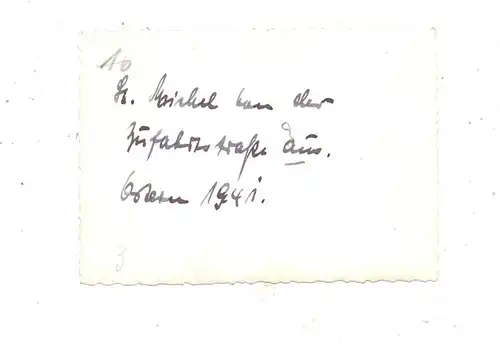 10
St. Michel von der
Zufahrtsstraße aus.
Ostern 1941.